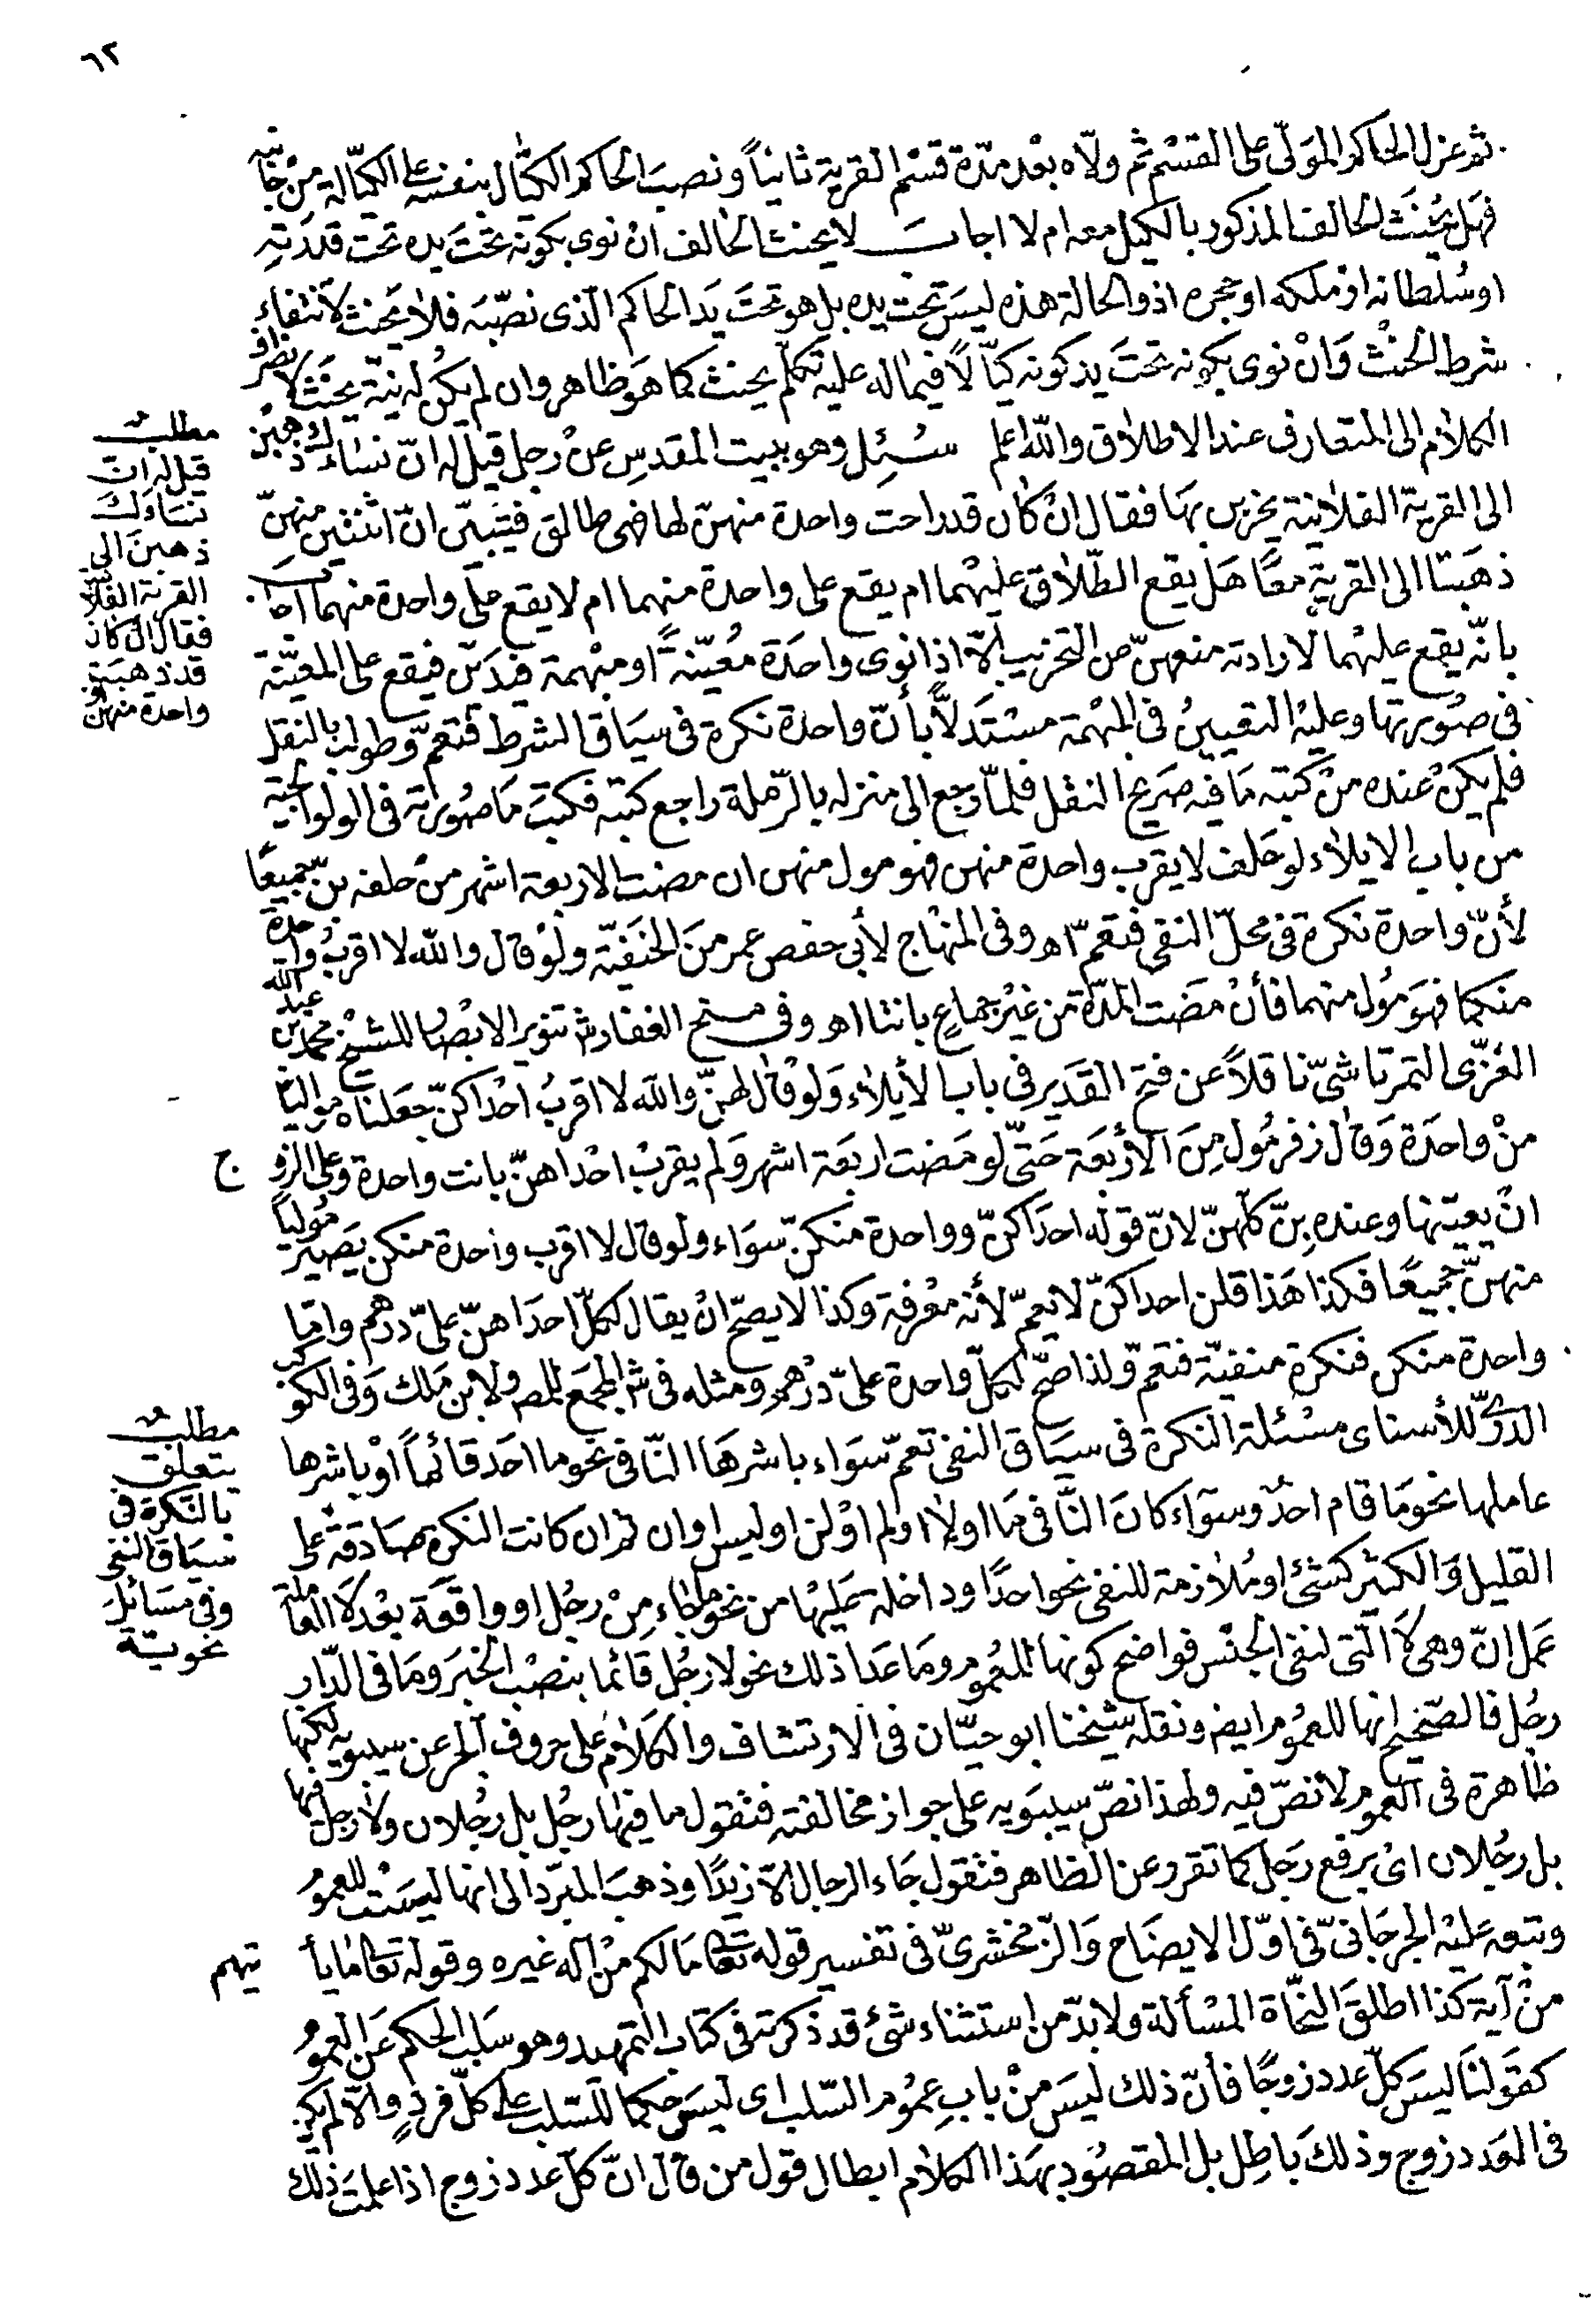 ٦٢
ثم عزل الحاكم المولّى على القسم ثم ولّاه بعد مدّة قسْم القرية ثانياً ونصب الحاكم الكيّال بنفسه على الكيّالة من جانبه
فهل يحنث الحالف المذكور بالكيل معه ام لا اجاب لا يحنث الحالف ان نوى بكونه تحت يده تحت قدرته
او سُلطانه او ملكه او حجره اذ والحالة هذه ليسَ تحت يده بل هو تحتَ يَد الحاكم الّذى نصّبَه فلا يحنث لانتفاء
شرط الحنث وَانْ نوى بكونه تحتَ يد كونه كيّالاً فيما له عليه تكلّم يحنث كما هوَ ظاهر وان لم يكن له نيّة يحنَث لانصراف
الكلام الى المتعارف عند الاطلاق والله اعلم سُئِل وهو ببيت المقدسِ عنْ رجل قيل له انّ نساءك ذهبن
الى القرية الفلانية يخربن بها فقال انْ كان قد راحت واحدة منهنّ لها فهى طالق فتبيّن انّ اثنتين منهنّ
ذهَبَتا الى القريةِ معًا هَل يقع الطّلاق عليهما ام يقع على واحدة منهما ام لا يقع على واحدة منهما اجاب
بانّه يقع عليهما لارادته منعهنّ من التخريب الّا اذا نوى واحدَة مُعيّنةً او مبْهمة فيدَيّن فيقع على المعيّنة
فى صُورتها وعليه التعيينُ فى المبْهمة مسْتَدلاًّ بأنّ واحدة نكرة فى سيَاق الشرط فتعمّ وطولب بالنقل
فلم يكنْ عنده منْ كتبه مَا فيه صَريح النقل فلمّا رجع الى منزله بالرّملة راجع كتبه فكتبَ مَا صُورته فى الولوالجية
من باب الايلاء لو حَلف لا يقرب واحدة منهن فهو مول منهن ان مضت الاربعة اشهر منْ حلفه بنّ جميعًا
لأنّ واحدة نكرة فى محلّ النفى فتعمّ اه وفى المنهاج لأبى حفص عمر منَ الحنَفيّة ولوْ قال والله لا اقربُ واحدة
منكما فهوَ مُول منهما فأنْ مَضَت المدّة من غيْر جماعٍ بانتا اهـ وفى منح الغفار ش تنوير الابصار للشيْخ محمد بن عبد الله
الغزّى التمرتاشىّ ناقلاً عن فتح القَدير فى باب الأيلاء وَلوْ قال لهنّ والله لا اقربُ احْداكنّ جعلناه مواليا
منْ واحدَة وَقال زفر مُول مِنَ الأربَعَة حَتّى لو مَضت اربَعَة اشهر وَلم يقربْ احْداهنّ بانت واحدة وعلى الزوج
انْ يعيّنها وعنده بِنّ كلهنّ لانّ قوْله احدَاكنّ وواحدة منكنّ سوَاء ولو قال لا اقرب واحدة منكن يَصير مُولياً
منهنّ جميعًا فكذا هَذا قلن احداكنّ لا يعمّ لأنه معْرفة وكذا لا يصحّ انْ يقال لكلّ احدَاهنّ علىّ درهم وامّا
واحدة منكن فنكرة منفيّة فتعمّ ولذا صَحّ لكلّ واحدة علىّ درْهم ومثله فى ش المجمَع للمص ولابن مَلك وَفى الكوكب
الدرّى للأسناى مسْئلة النكرة فى سيَاق النفى تعمّ سَوَاء باشرهَا النّافى نحو ما احَد قائماً اوْ باشرها
عاملها نحو مَا قام احدٌ وسوَآء كانَ النَّافى مَا او لا او لم اوْ لن او ليس او ان ثم ان كانت النكرة صَادقة على
القليل وَالكثير كشئ او مُلازمة للنفى نحو احدًا وداخلة عَليْها من نحو ما جاء مِنْ رجُل او واقعَة بعْد لا العاملة
عَمل انّ وهى لا الّتى لنفى الجنْس فواضح كونها للعُموم ومَا عَدا ذلك نحو لا رجُل قائما بنصْب الخبَر ومَا فى الدّار
رجُل فالصّحِيح انها للعمُوم ايض ونقله شيْخنا ابو حيّان فى الارتشاف والكلام على حروف الجر عن سيبويه لكنها
ظاهرة فى العموم لا نصّ فيه ولهذا نصّ سيبَويه على جواز مخالفته فتقول ما فيها رجُل بل رجُلان ولا رجل فيها
بل رجُلان اىْ برفع رجَل كما تقرر عن الظاهر فتقول جَاء الرجال الّا زيدًا وذهبَ المبرّد الى انها ليسَتْ للعمُوم
وتبعه عَليْه الجرجَانىّ فى اوّل الايضَاح وَالزّمخشرىّ فى تفسير قوله تعا مَا لكم منْ اله غيره وقوله تعا ما يأتيهم
منْ آية كذا اطلقَ النحّاة المسْألة ولا بدّ من استثناء شئ قد ذكرته فى كتاب التمهيد وهو سَلب الحكم عَن العمُوم
كقوَلنَا ليسَ كلّ عدد زوجًا فأنّ ذلك ليسَ منْ بابِ عمُوم السّلب اى ليسَ حكما للسّلب على كلّ فردٍ والّا لم يكن
فى العَدد زوج وذلكَ بَاطِل بل المقصُود بهَذا الكلام ابطال قول من قال انّ كلّ عدد زوج اذا علمتَ ذلك
مطلب
قيل له ان
نساؤك
ذهبنَ الى
القرية الفلا
فقال ان كان
قد ذهبَتْ
واحدة منهن
مطلب
يتعلق
بالنكرة فى
سيَاق النفى
وفى مسَائل
نحويّة